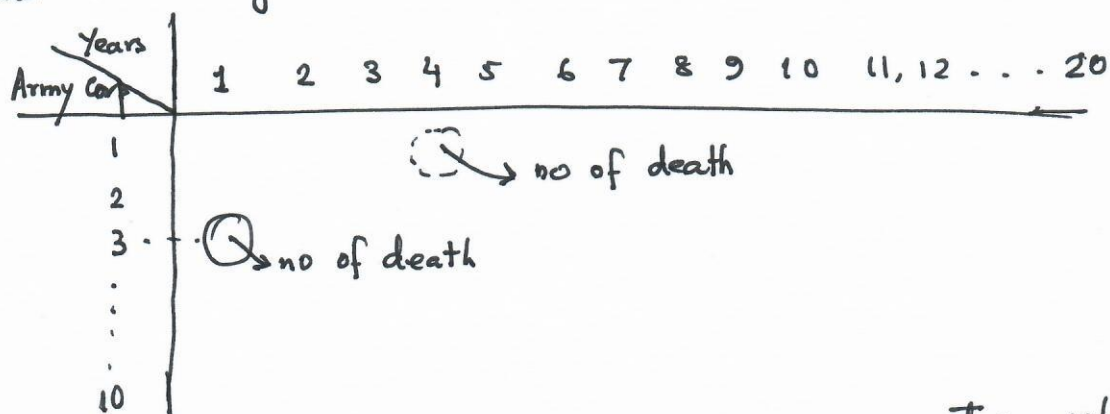 Years
Army Corp 1 2 3 4 5 6 7 8 9 10 11, 12 . . . . 20
1 no of death
2
3 . no of death
.
.
.
.
10